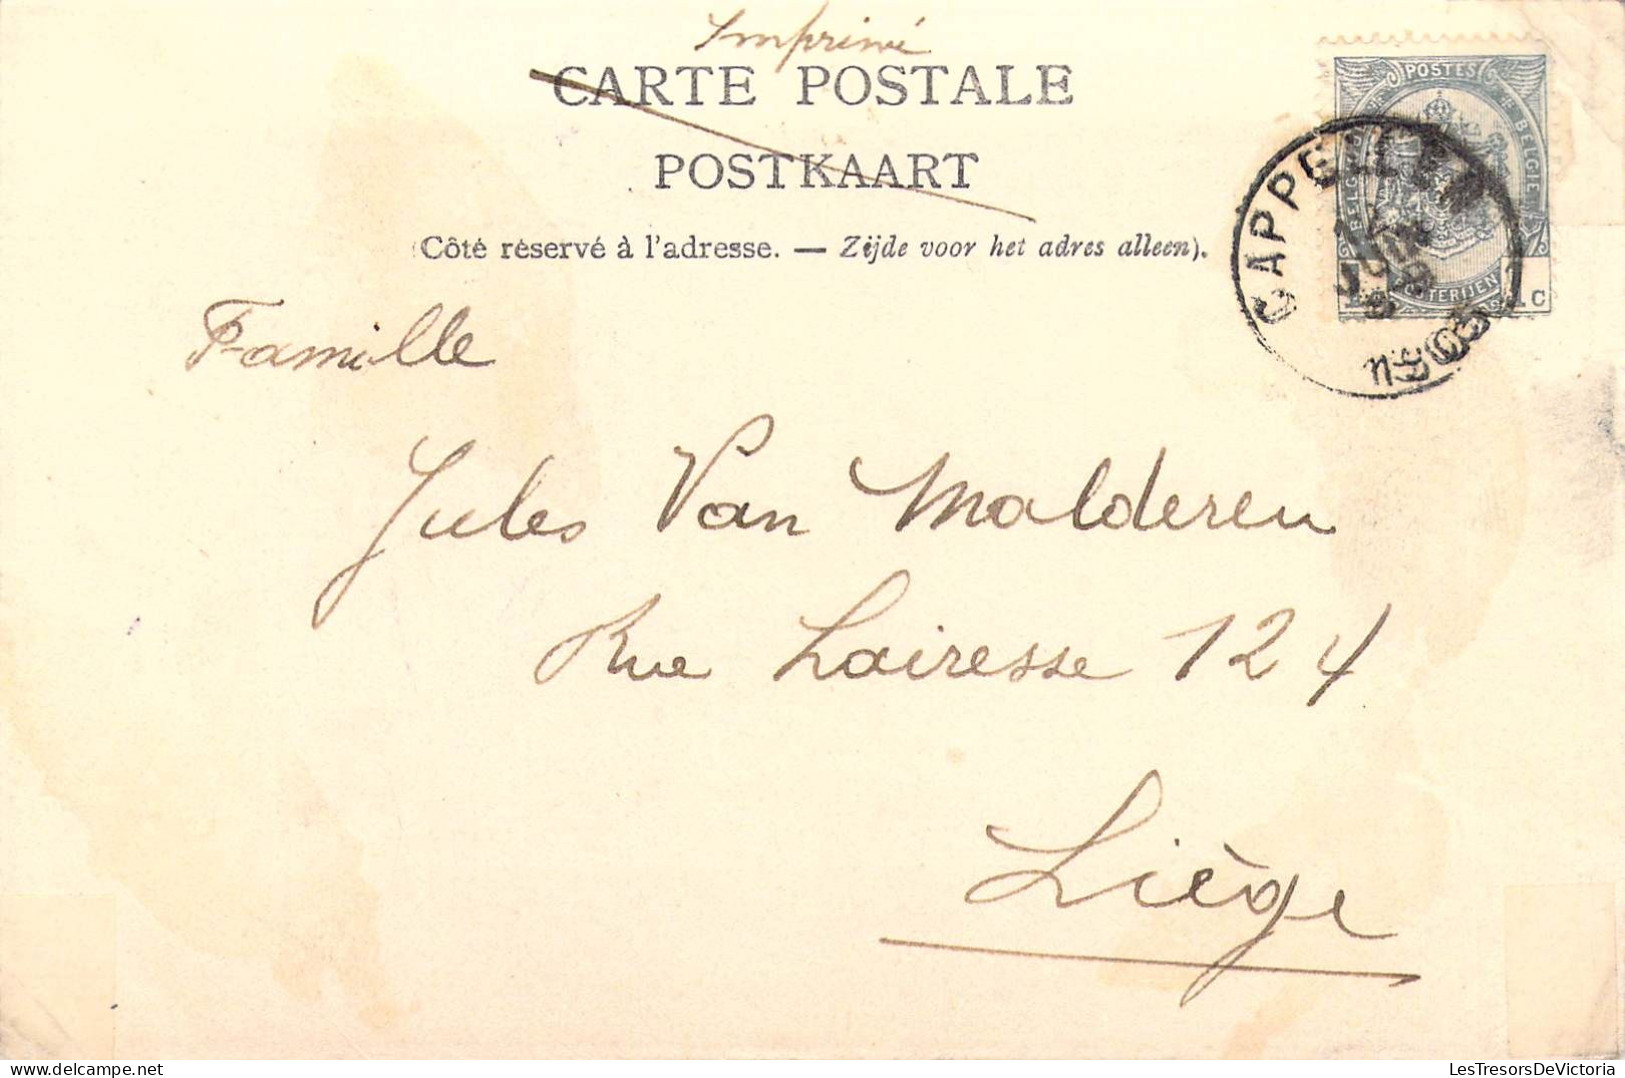 Imprimé
CARTE POSTALE
POSTKAART
(Côté réservé à l'adresse. — Zijde voor het adres alleen).
POSTES
BELGIQUE BELGIË
POSTERIJEN
1 C
CAPPELLEN
JUIN
1903
Famille
Jules Van Malderen
Rue Lairesse 124
Liège
LesTresorsDeVictoria